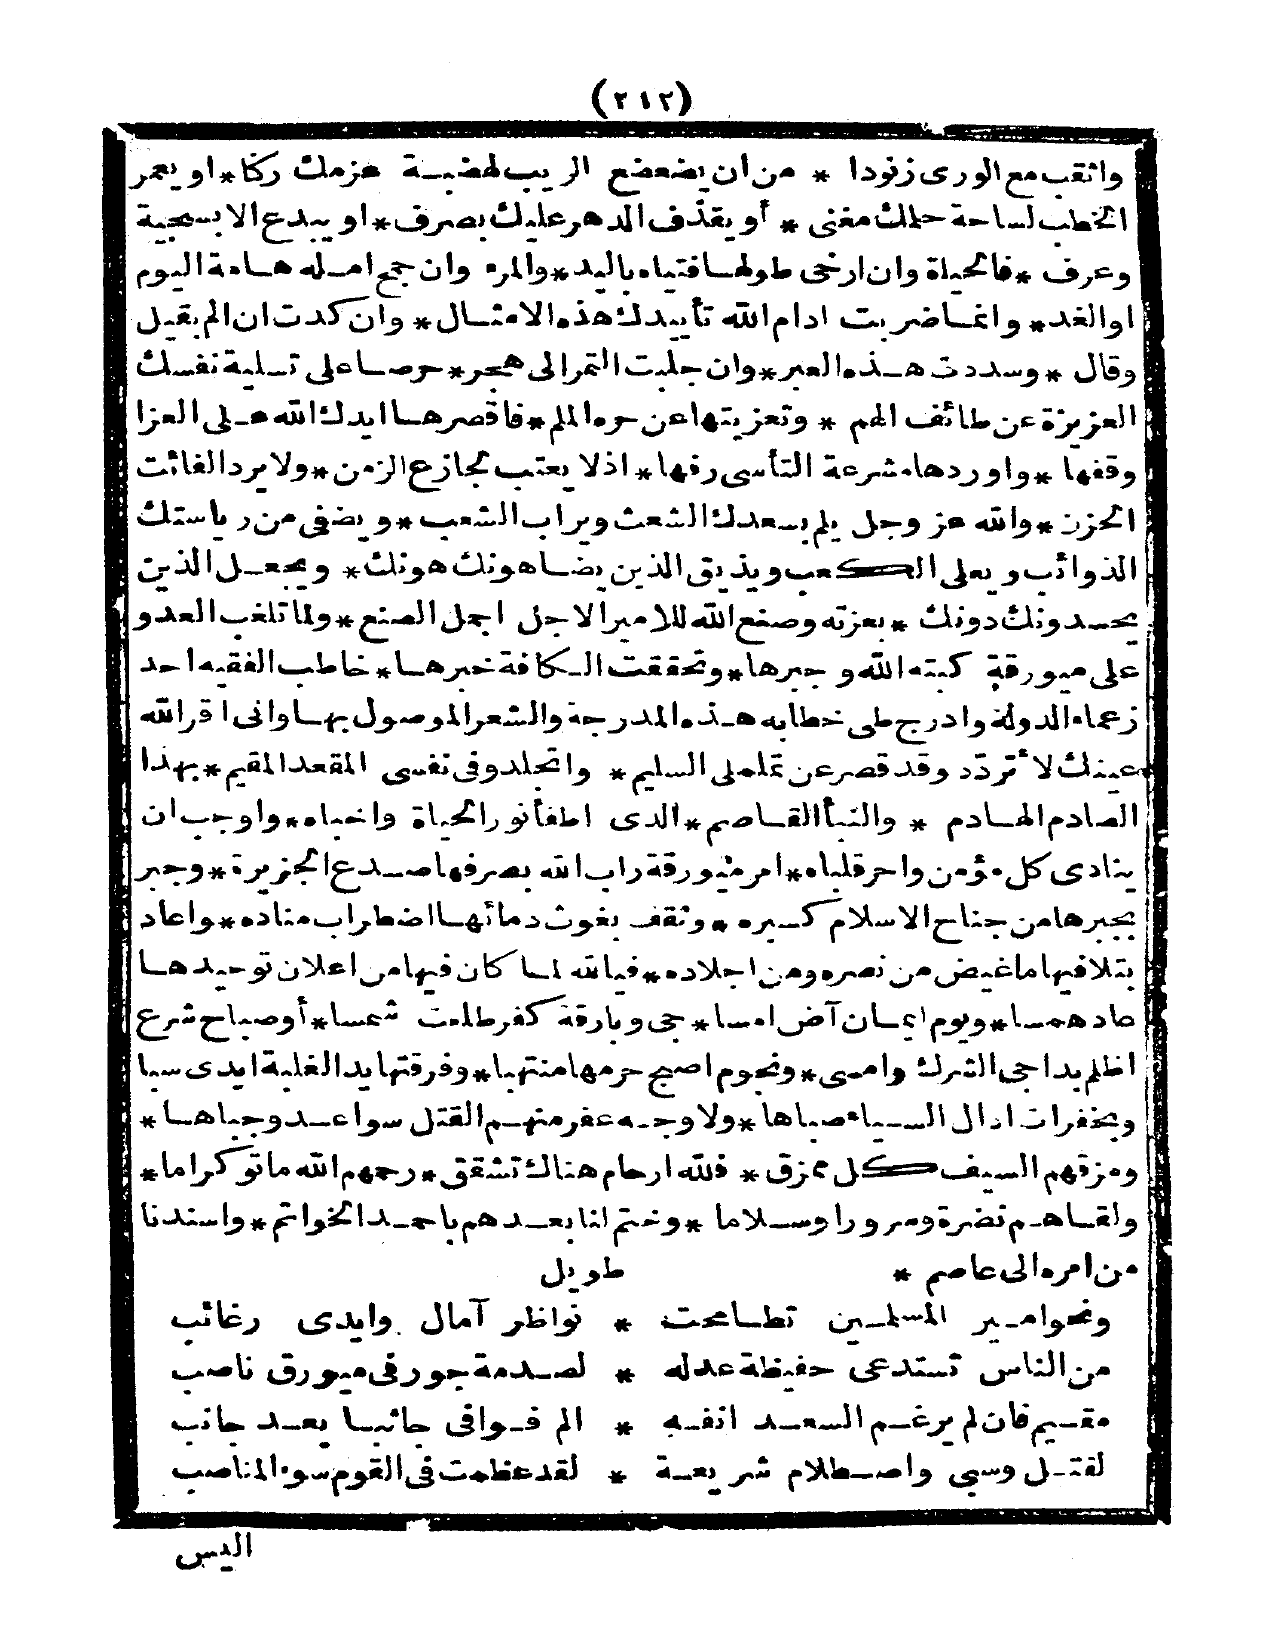 (٢١٢)
واثقب مع الورى زنودا * من ان يضعضع الريب لهضبة عزمك ركنا * او يعمر
الخطب لساحة حلمك مغنى * أو يقذف الدهر عليك بصرف * او يبدع الا بسجية
وعرف * فالحياة وان ارخى طولها فتياه باليد * والمرء وان جمح امله هامة اليوم
او الغد * وانما ضربت ادام الله تأييدك هذه الامثال * وان كدت ان الم بقيل
وقال * وسددت هذه العبر * وان جلبت التمر الى هجر * حرصا على تسلية نفسك
العزيزة عن طائف الهم * وتعزيتها عن حره الملم * فاقصرها ايدك الله على العزا
وقفها * واوردها مشرعة التأسى رفها * اذ لا يعتب لجازع الزمن * ولا يرد الفائت
الحزن * والله عز وجل يلم بسعدك الشعث ويراب الشعب * ويضفى من رياستك
الذوائب ويعلى الكعب ويذيق الذين يضاهونك هونك * ويجعل الذين
يحسدونك دونك * بعزته وصنع الله للامير الاجل اجمل الصنع * ولما تلغب العدو
على ميورقة كبته الله وجبرها * وتحققت الكافة خبرها * خاطب الفقيه احد
زعماء الدولة وادرج طى خطابه هذه المدرجة والشعر الموصول بها وانى اقر الله
عينك لا أتردد وقد قصر عن تململى السليم * واتجلد وفى نفسى المقعد المقيم * بهذا
الصادم الهادم * والنبأ القاصم * الذى اطفأ نور الحياة واخباه * واوجب ان
ينادى كل مؤمن واحر قلباه * امر ميورقة راب الله بصرفها صدع الجزيرة * وجبر
بجبرها من جناح الاسلام كسيره * وثقف بغوث دمائها اضطراب مناده * واعاد
بتلافيها ما غيض من نصره ومن اجلاده * فيالله لما كان فيها من اعلان توحيدها
عاد همسا * ويوم ايمان آض امسا * حى وبارقة كفر طلعت شمسا * أو صباح شرع
اظلم بداجى الشرك وامسى * ونجوم اصبح حرمها منتهبا * وفرقتها يد الغلبة ايدى سبا
وبخفرات ادال السباء صباها * ولا وجه عفر منهم القتل سواعد وجباها *
ومزقهم السيف كل ممزق * فلله ارحام هناك تشقق * رحمهم الله ماتو كراما *
ولقاهم نضرة وسرورا وسلاما * وختم لنا بعدهم باحمد الخواتم * واسندنا
من امره الى عاصم * طويل
ونحو امير المسلمين تطامحت * نواظر آمال وايدى رغائب
من الناس تستدعى حفيظة عدله * لصدمة جور فى ميورق ناصب
مقيم فان لم يرغم السعد انفه * الم فوافى جانبا بعد جانب
لقتل وسبى واصطلام شريعة * لقد عظمت فى القوم سوء المناصب
اليس